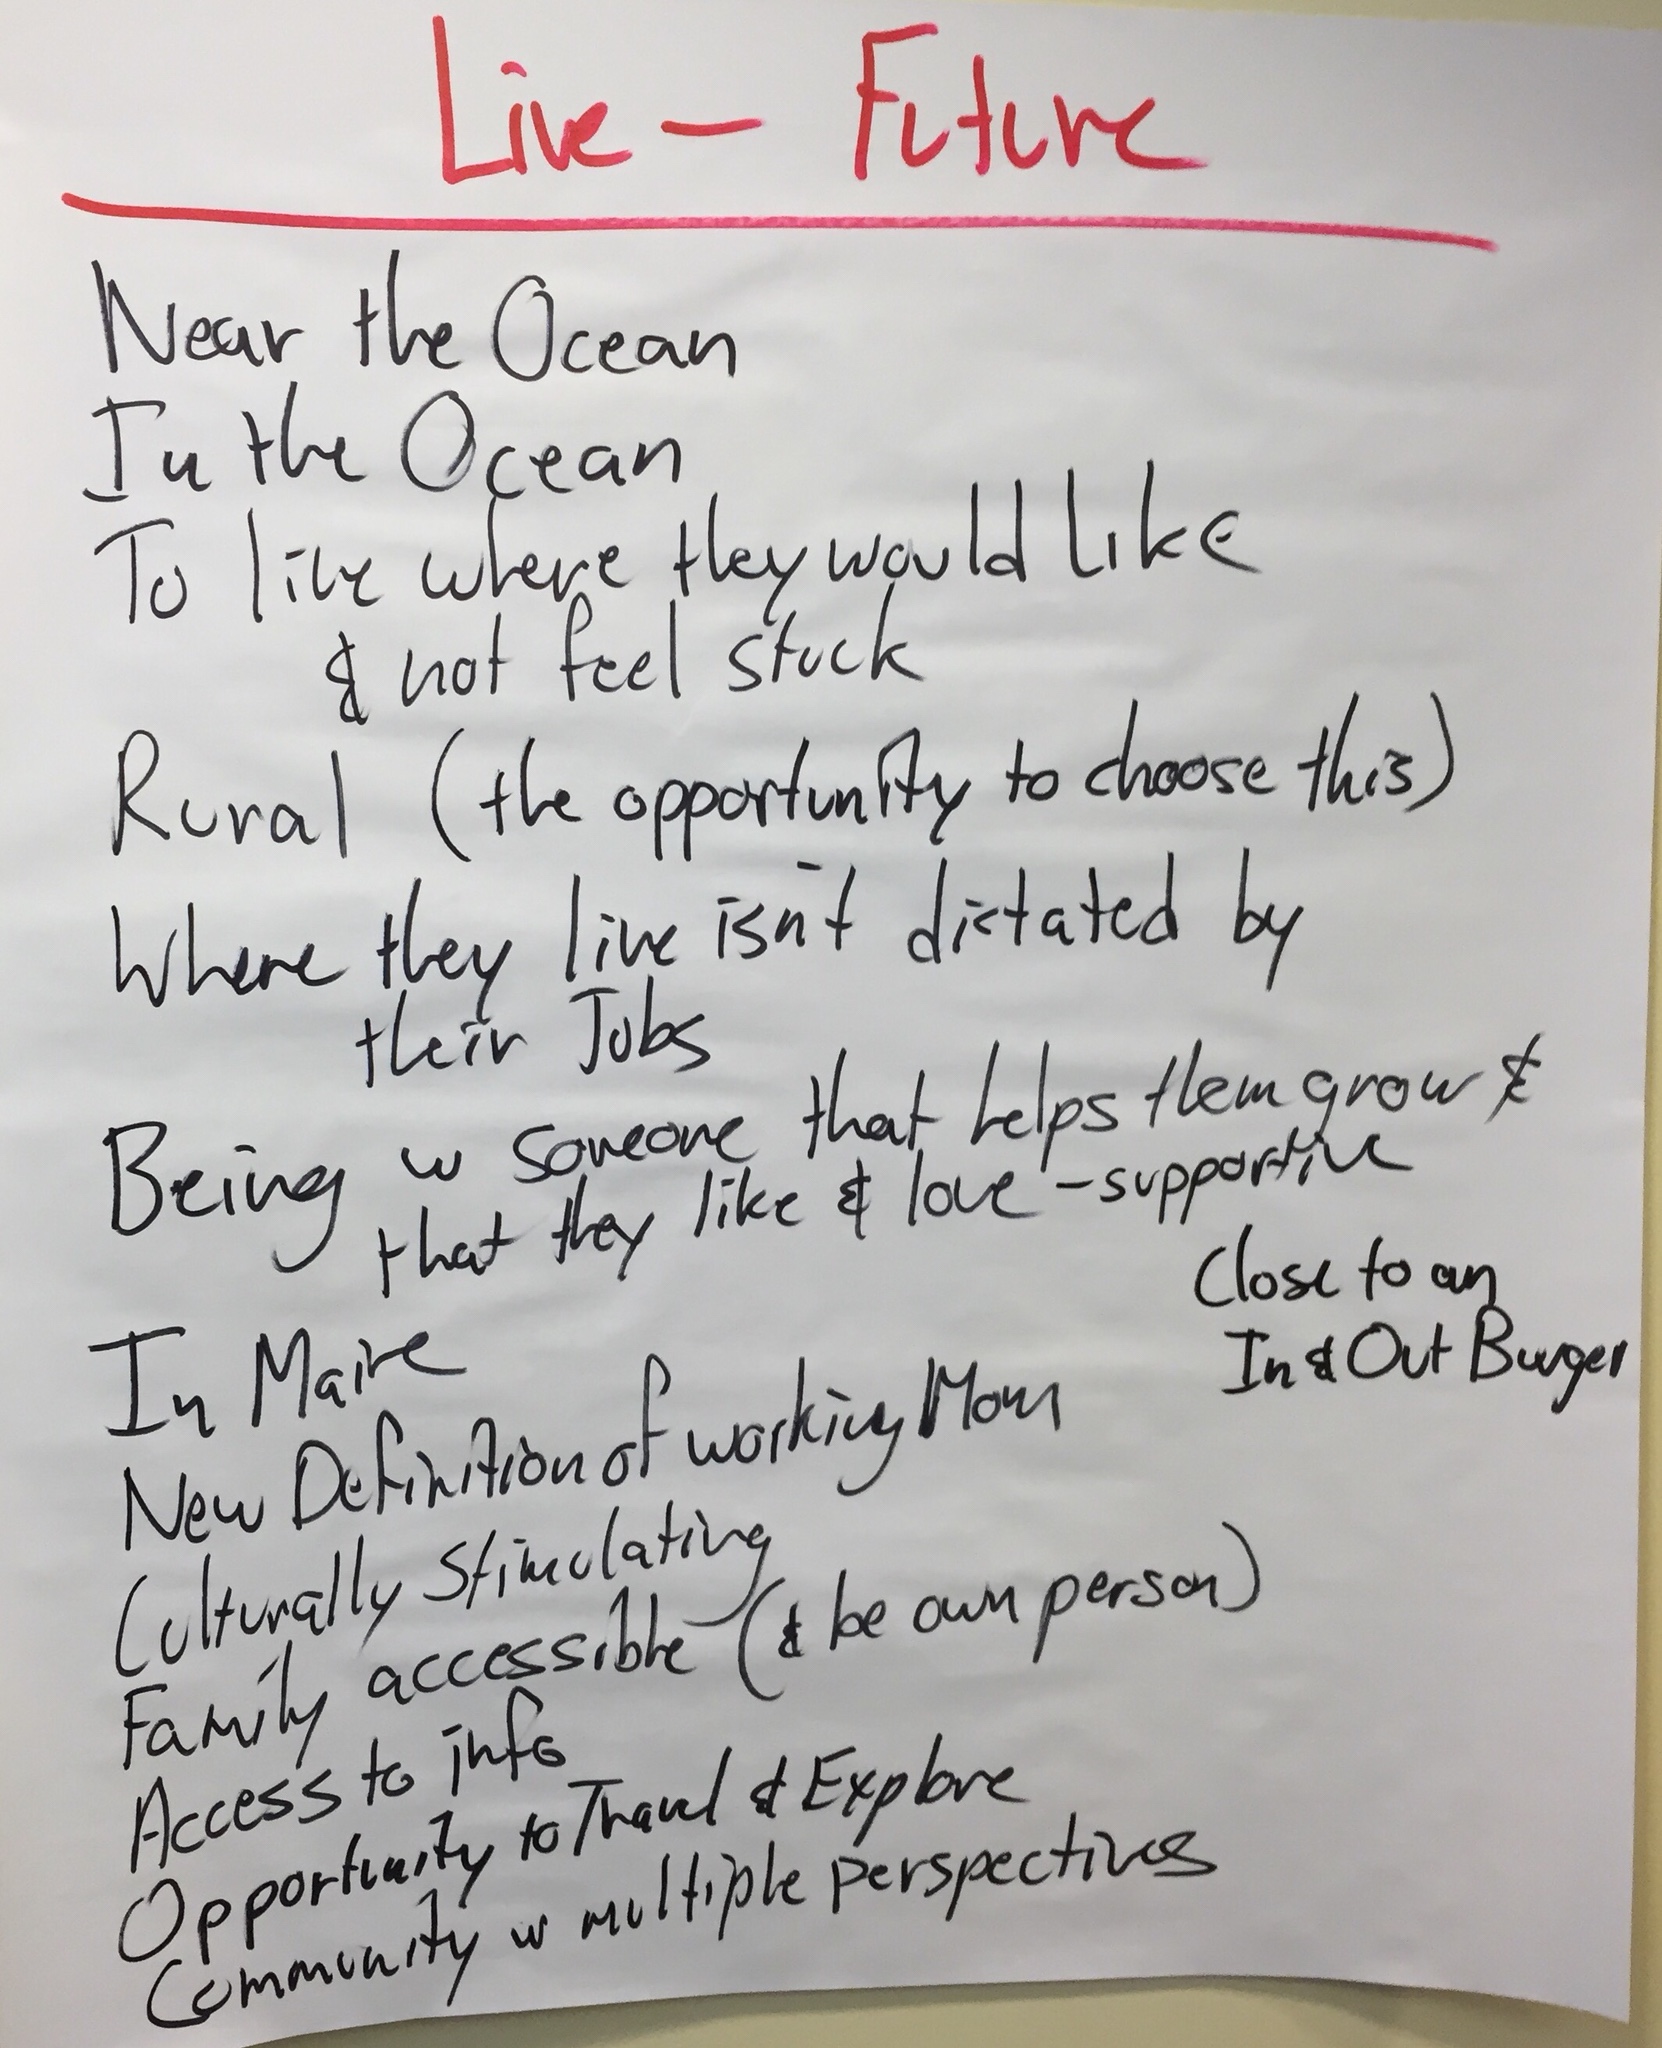 Live - Future
Near the Ocean
In the Ocean
To live where they would like
& not feel stuck
Rural (the opportunity to choose this)
Where they live isn't dictated by
their Jobs
Being w someone that helps them grow &
that they like & love - supportive
Close to an
In & Out Burger
In Maine
New Definition of working Mom
Culturally Stimulating
Family accessible (& be own person)
Access to info
Opportunity to Travel & Explore
Community w multiple perspectives